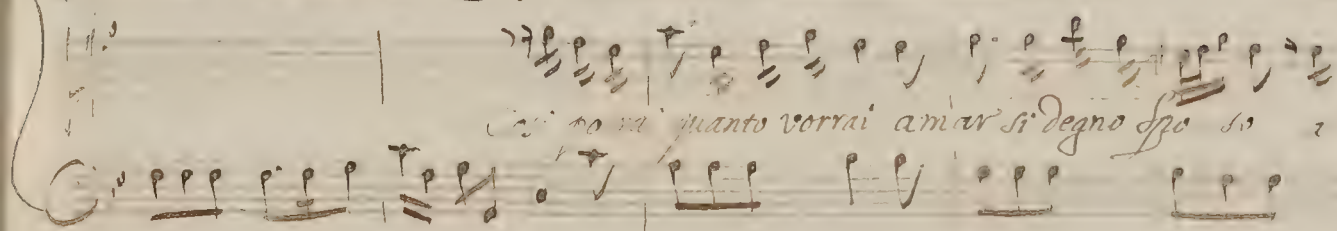 quanto vorrai amar si degno spo so